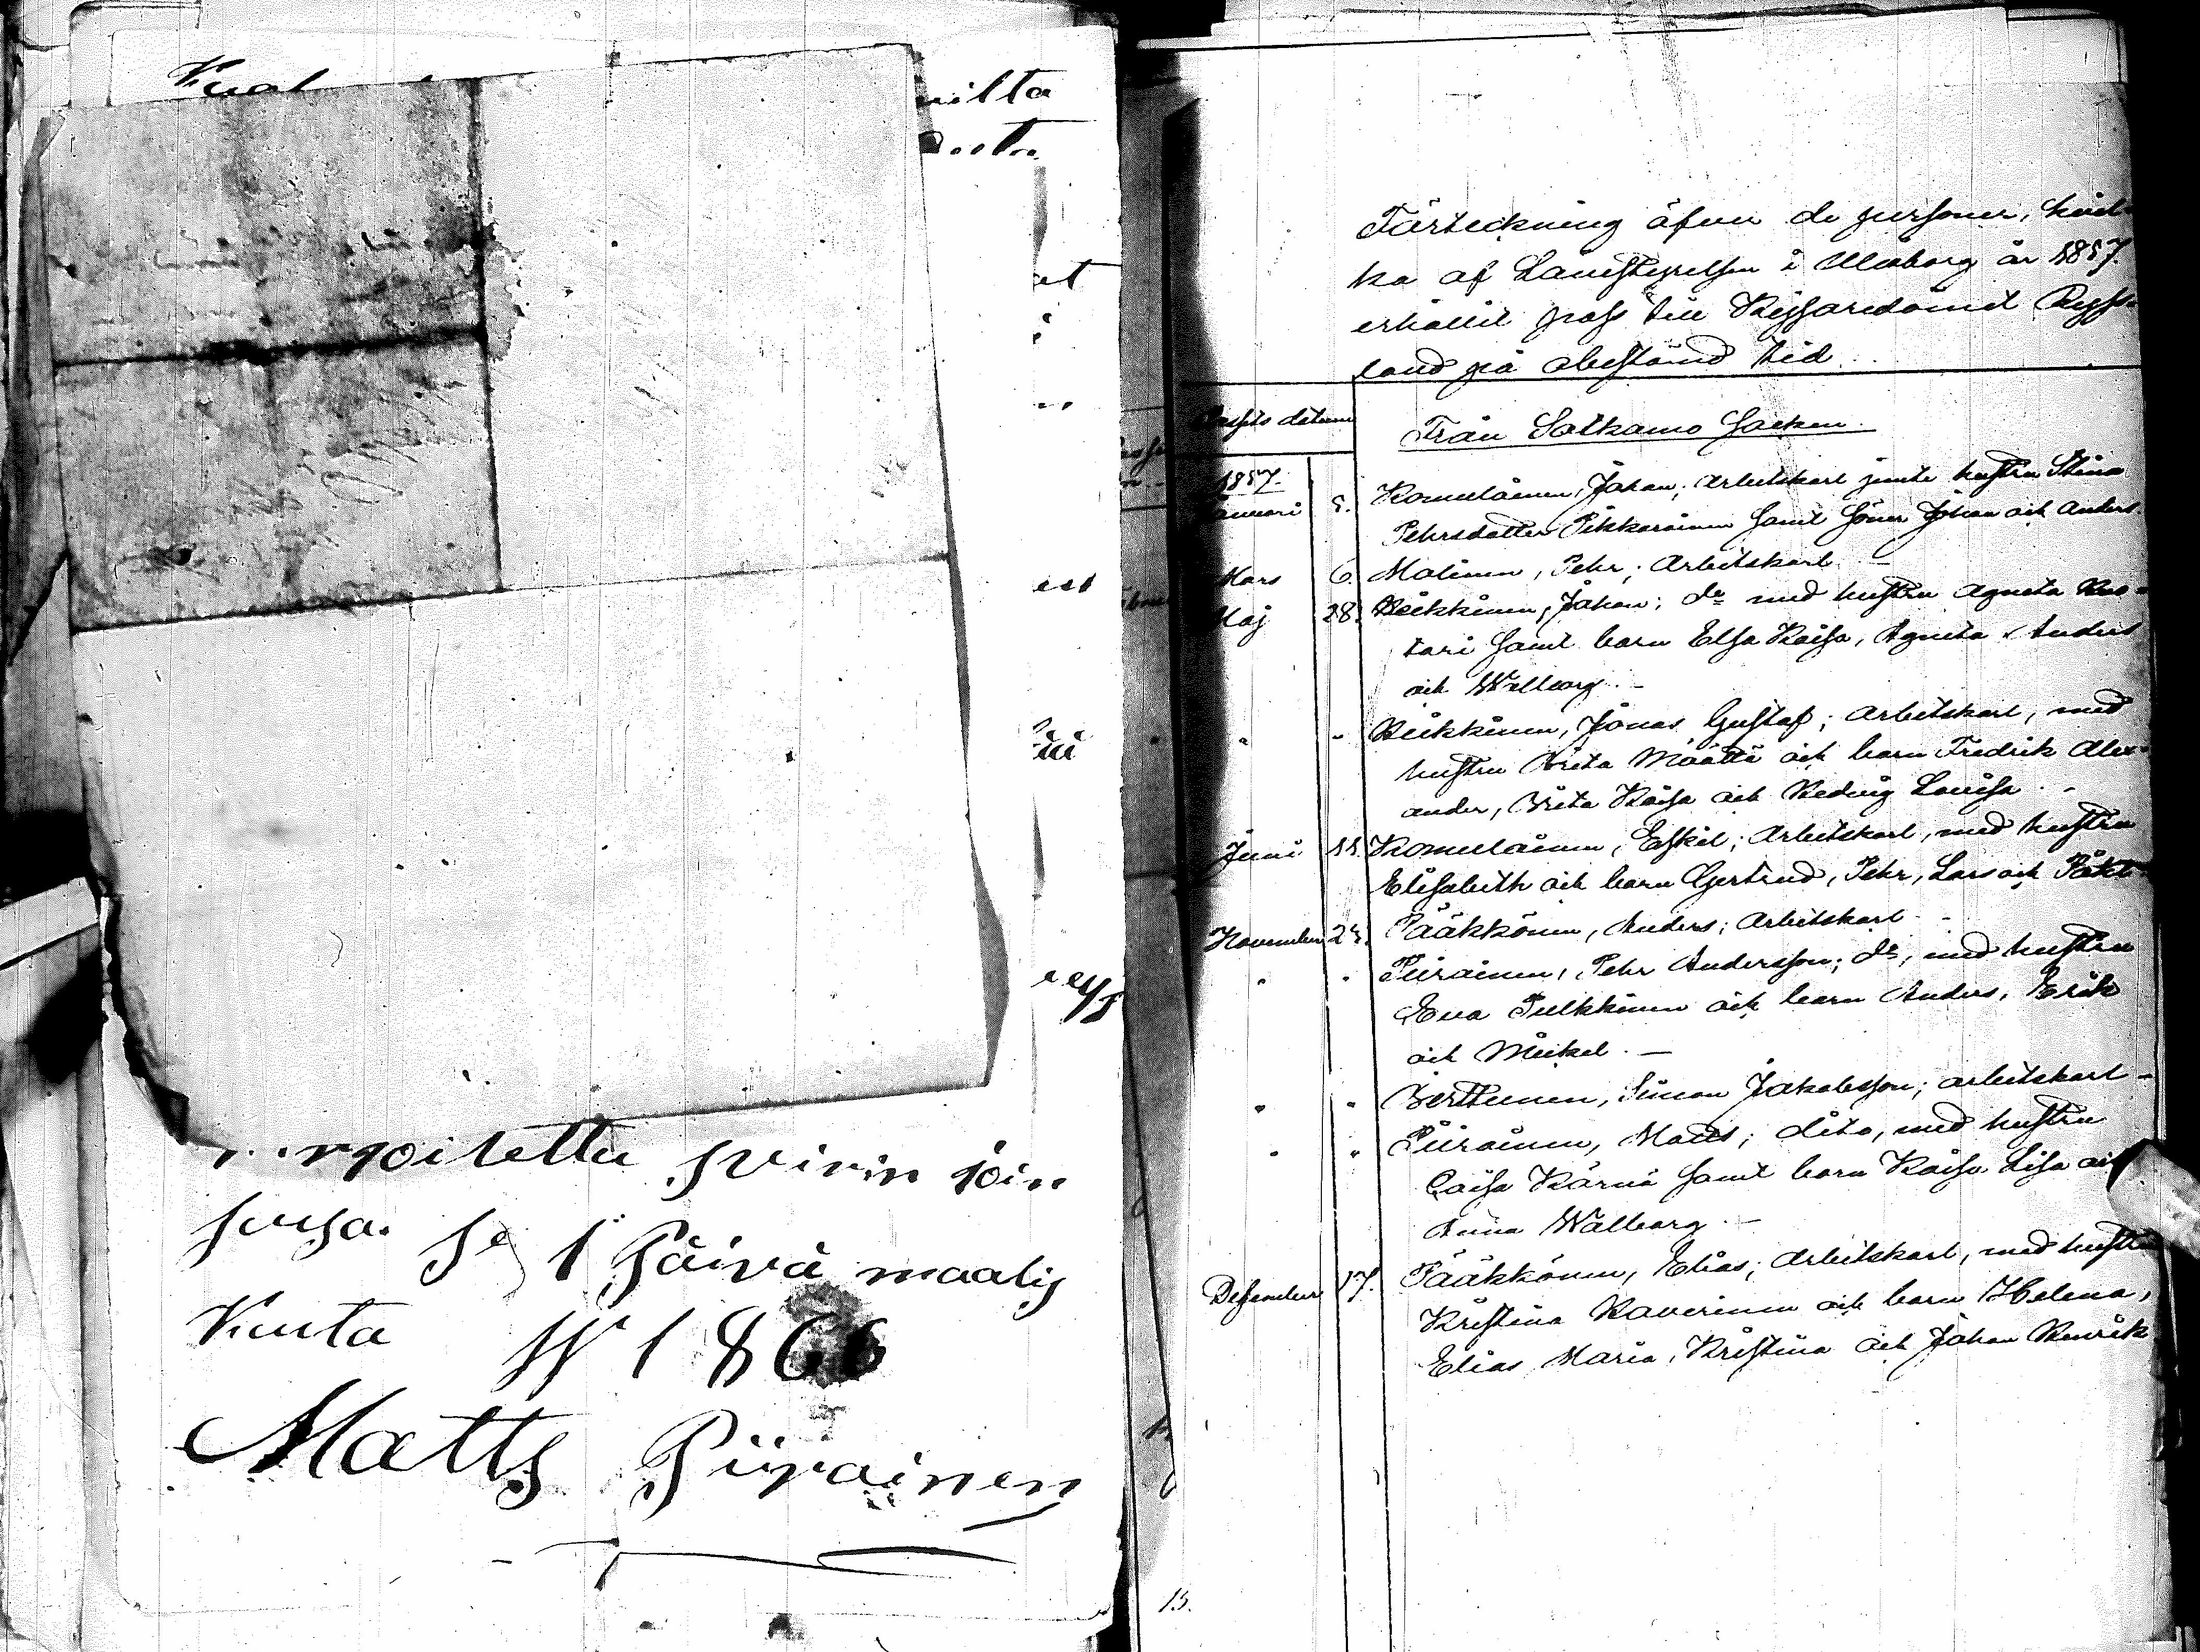 uilta
at
est
rgoitettu
se 1 Päivä maalis
Kuuta W 1866
Matts Piirainen
Förteckning öfver de personer, hvil-
ka af Länestyrelsen i Uleåborg år 1857
erhållit pass till Kejsaredömet Ryss-
land på obestämd tid.
Passets datum
Från Sotkamo Socken.
1857.
Januari 5. Komulainen, Johan; Arbetskarl jemte hustru Stina
Pehrsdotter Pikkarainen samt Söner Johan och Anders.
Mars 6. Malinen, Pehr; Arbetskarl. –
Maj 28. Heikkinen, Johan; do med hustru Agneta Kuo-
tari samt barn Elsa Kaisa, Agneta, Anders
och Walborg. –
" " Heikkinen, Jonas Gustaf; Arbetskarl, med
hustru Brita Määttä och barn Fredrik Alex-
ander, Brita Kaisa och Hedvig Lovisa. –
Juni 11. Komulainen, Eskil; Arbetskarl, med hustru
Elisabeth och barn Gertrud, Pehr, Lars och
November 23. Pääkkönen, Anders; Arbetskarl. –
" " Piirainen, Pehr Andersson; do, med hustru
Eva Pulkkinen och barn Anders, Erik
och Mickel. –
" " Berttunen, Simon Jakobsson; arbetskarl –
" " Piirainen, Matts; dito, med hustru
Caisa Kärnä samt barn Kaisa Lisa och
Anna Walborg. –
December 17. Pääkkönen, Elias; Arbetskarl, med hustru
Kristina Kaverinen och barn Helena,
Elias, Maria, Kristina och Johan Henrik
15.